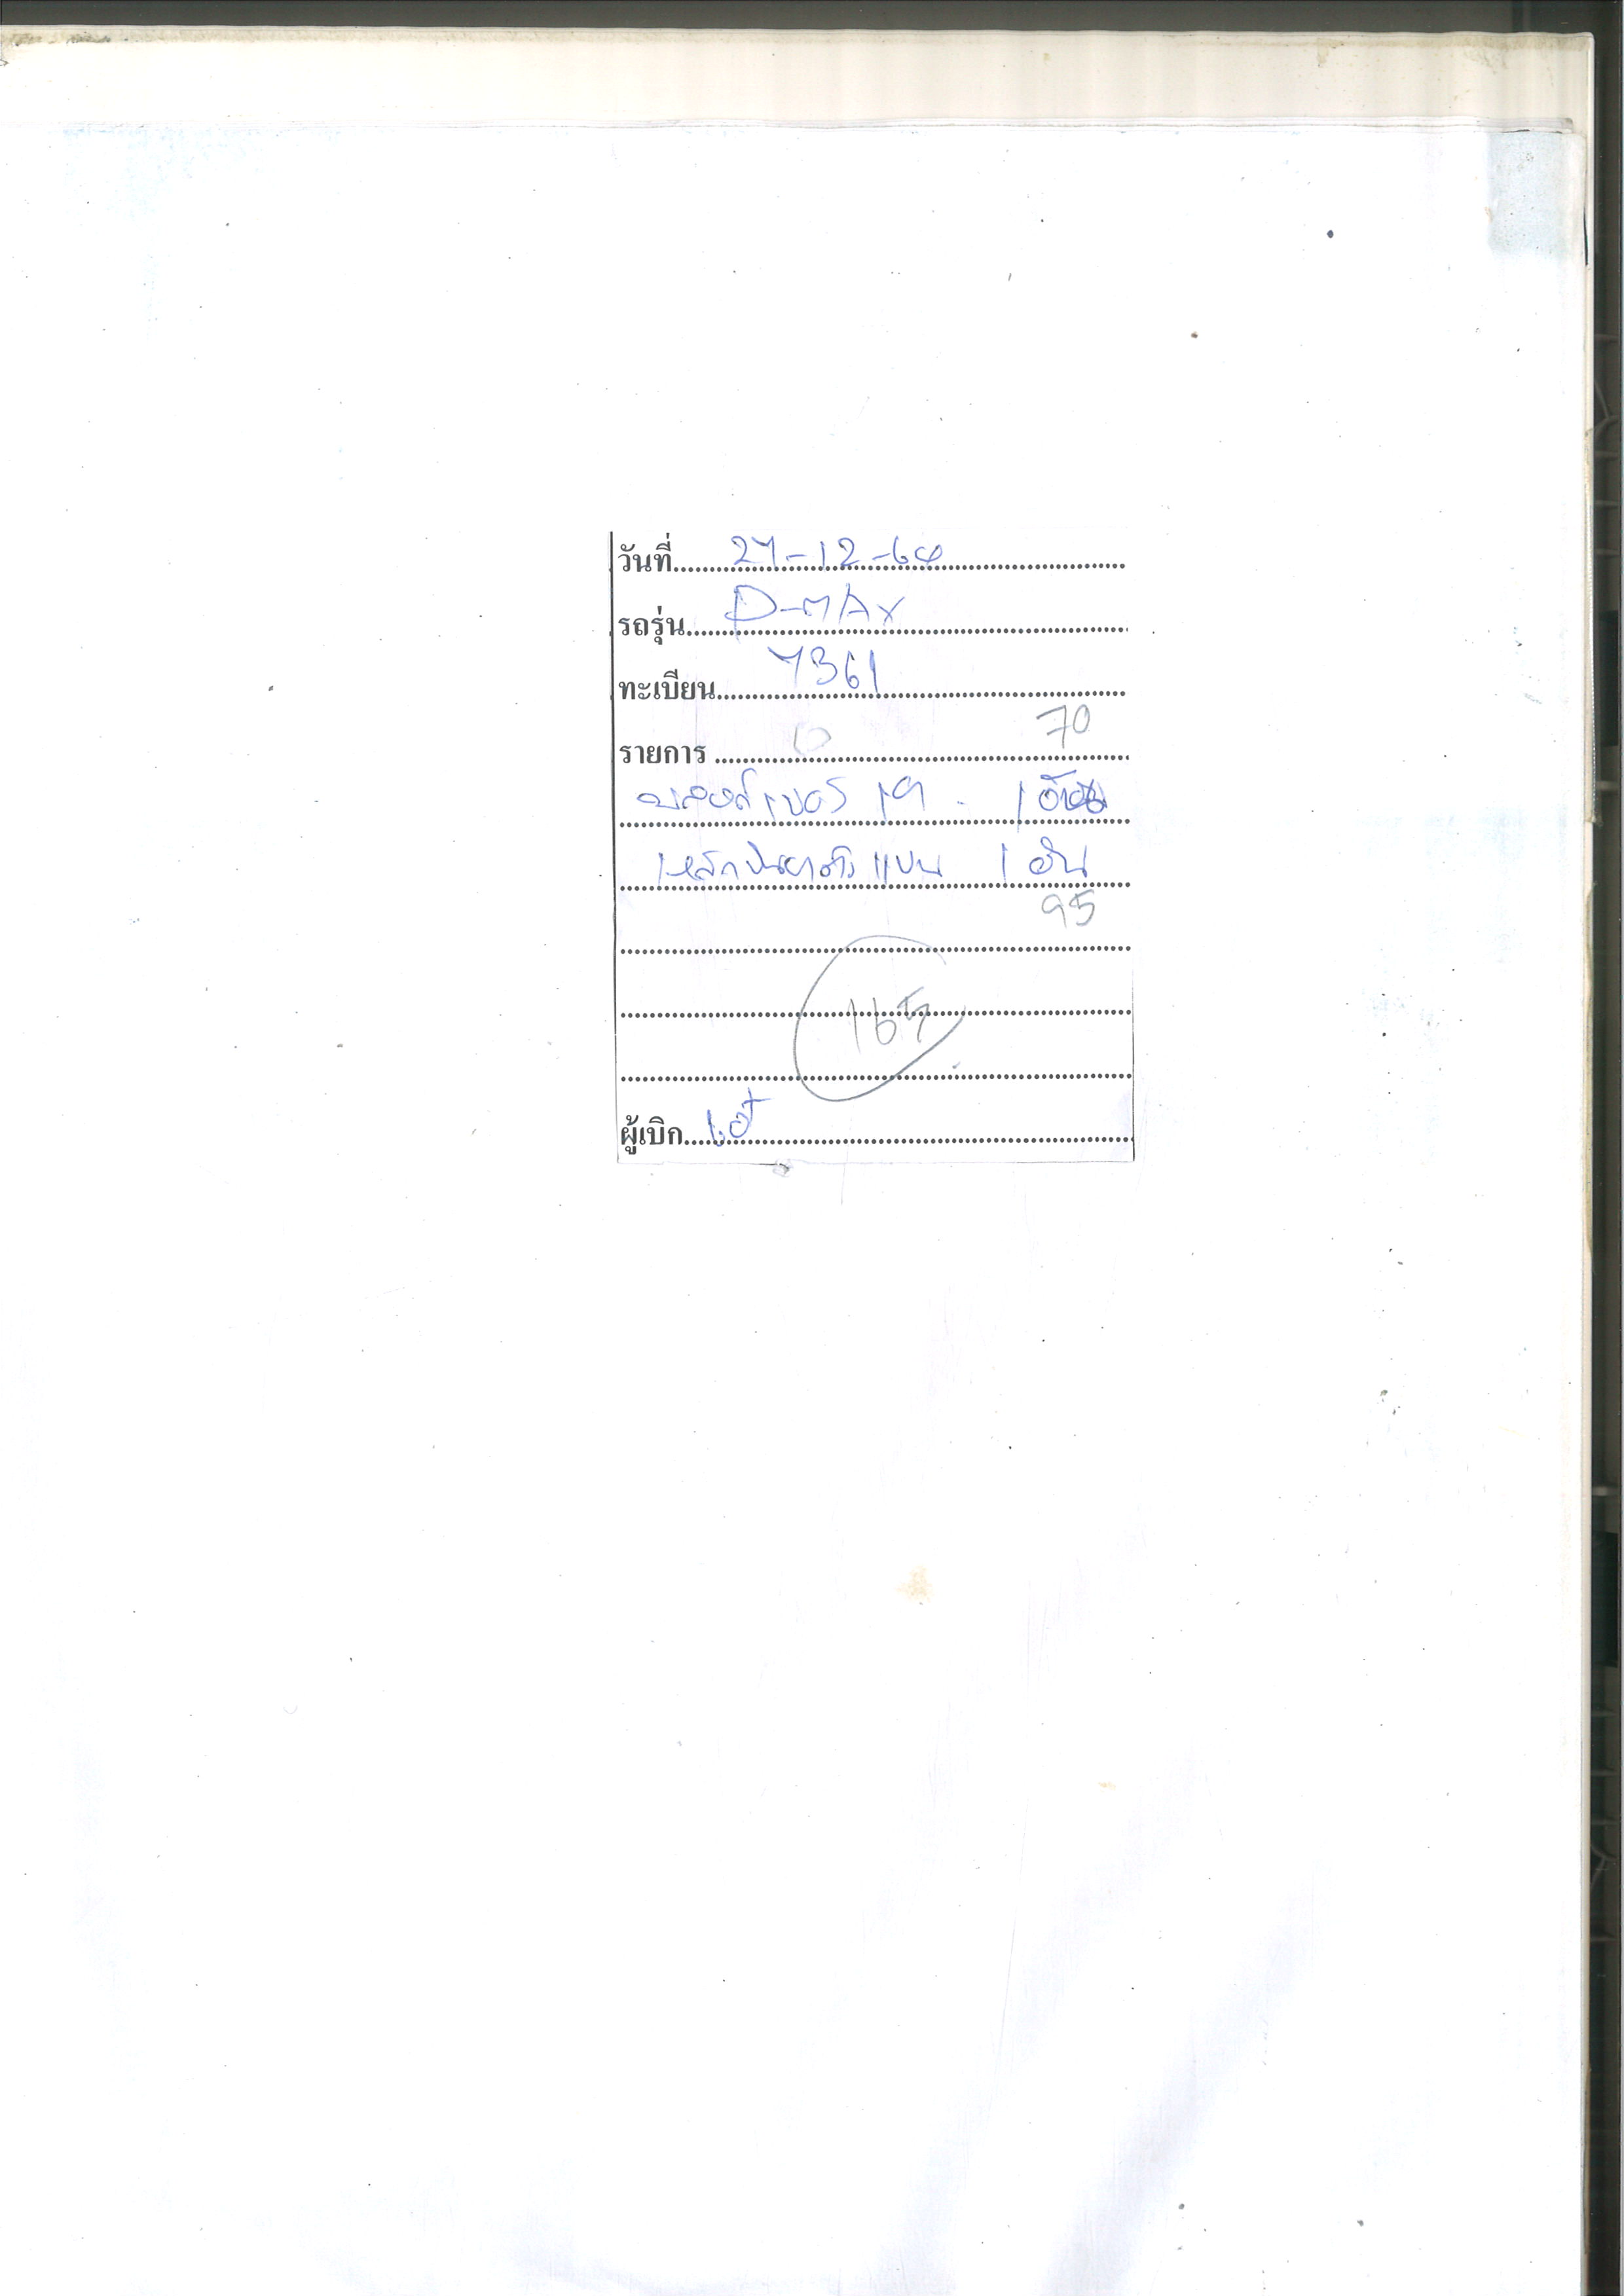 วันที่ 27-12-64
รถรุ่น D-MAX
ทะเบียน 7361
รายการ 70
บล๊อกเบอร์ 19 1 อัน
เหล็ก แบน 1 อัน
95
165
ผู้เบิก